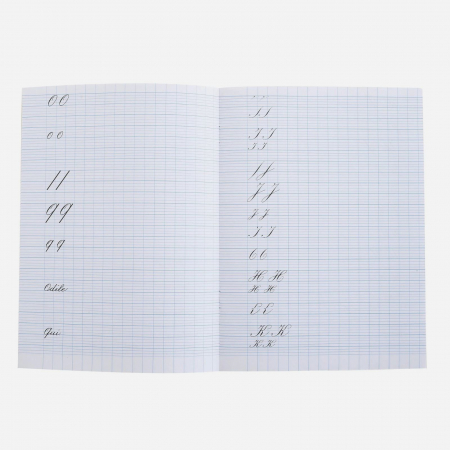 O O
o o
l l
q q
q q
Odile
qui
I I
I I
I I
J J
J J
J J
I I
O O
H H
H H
O O
K K
K K